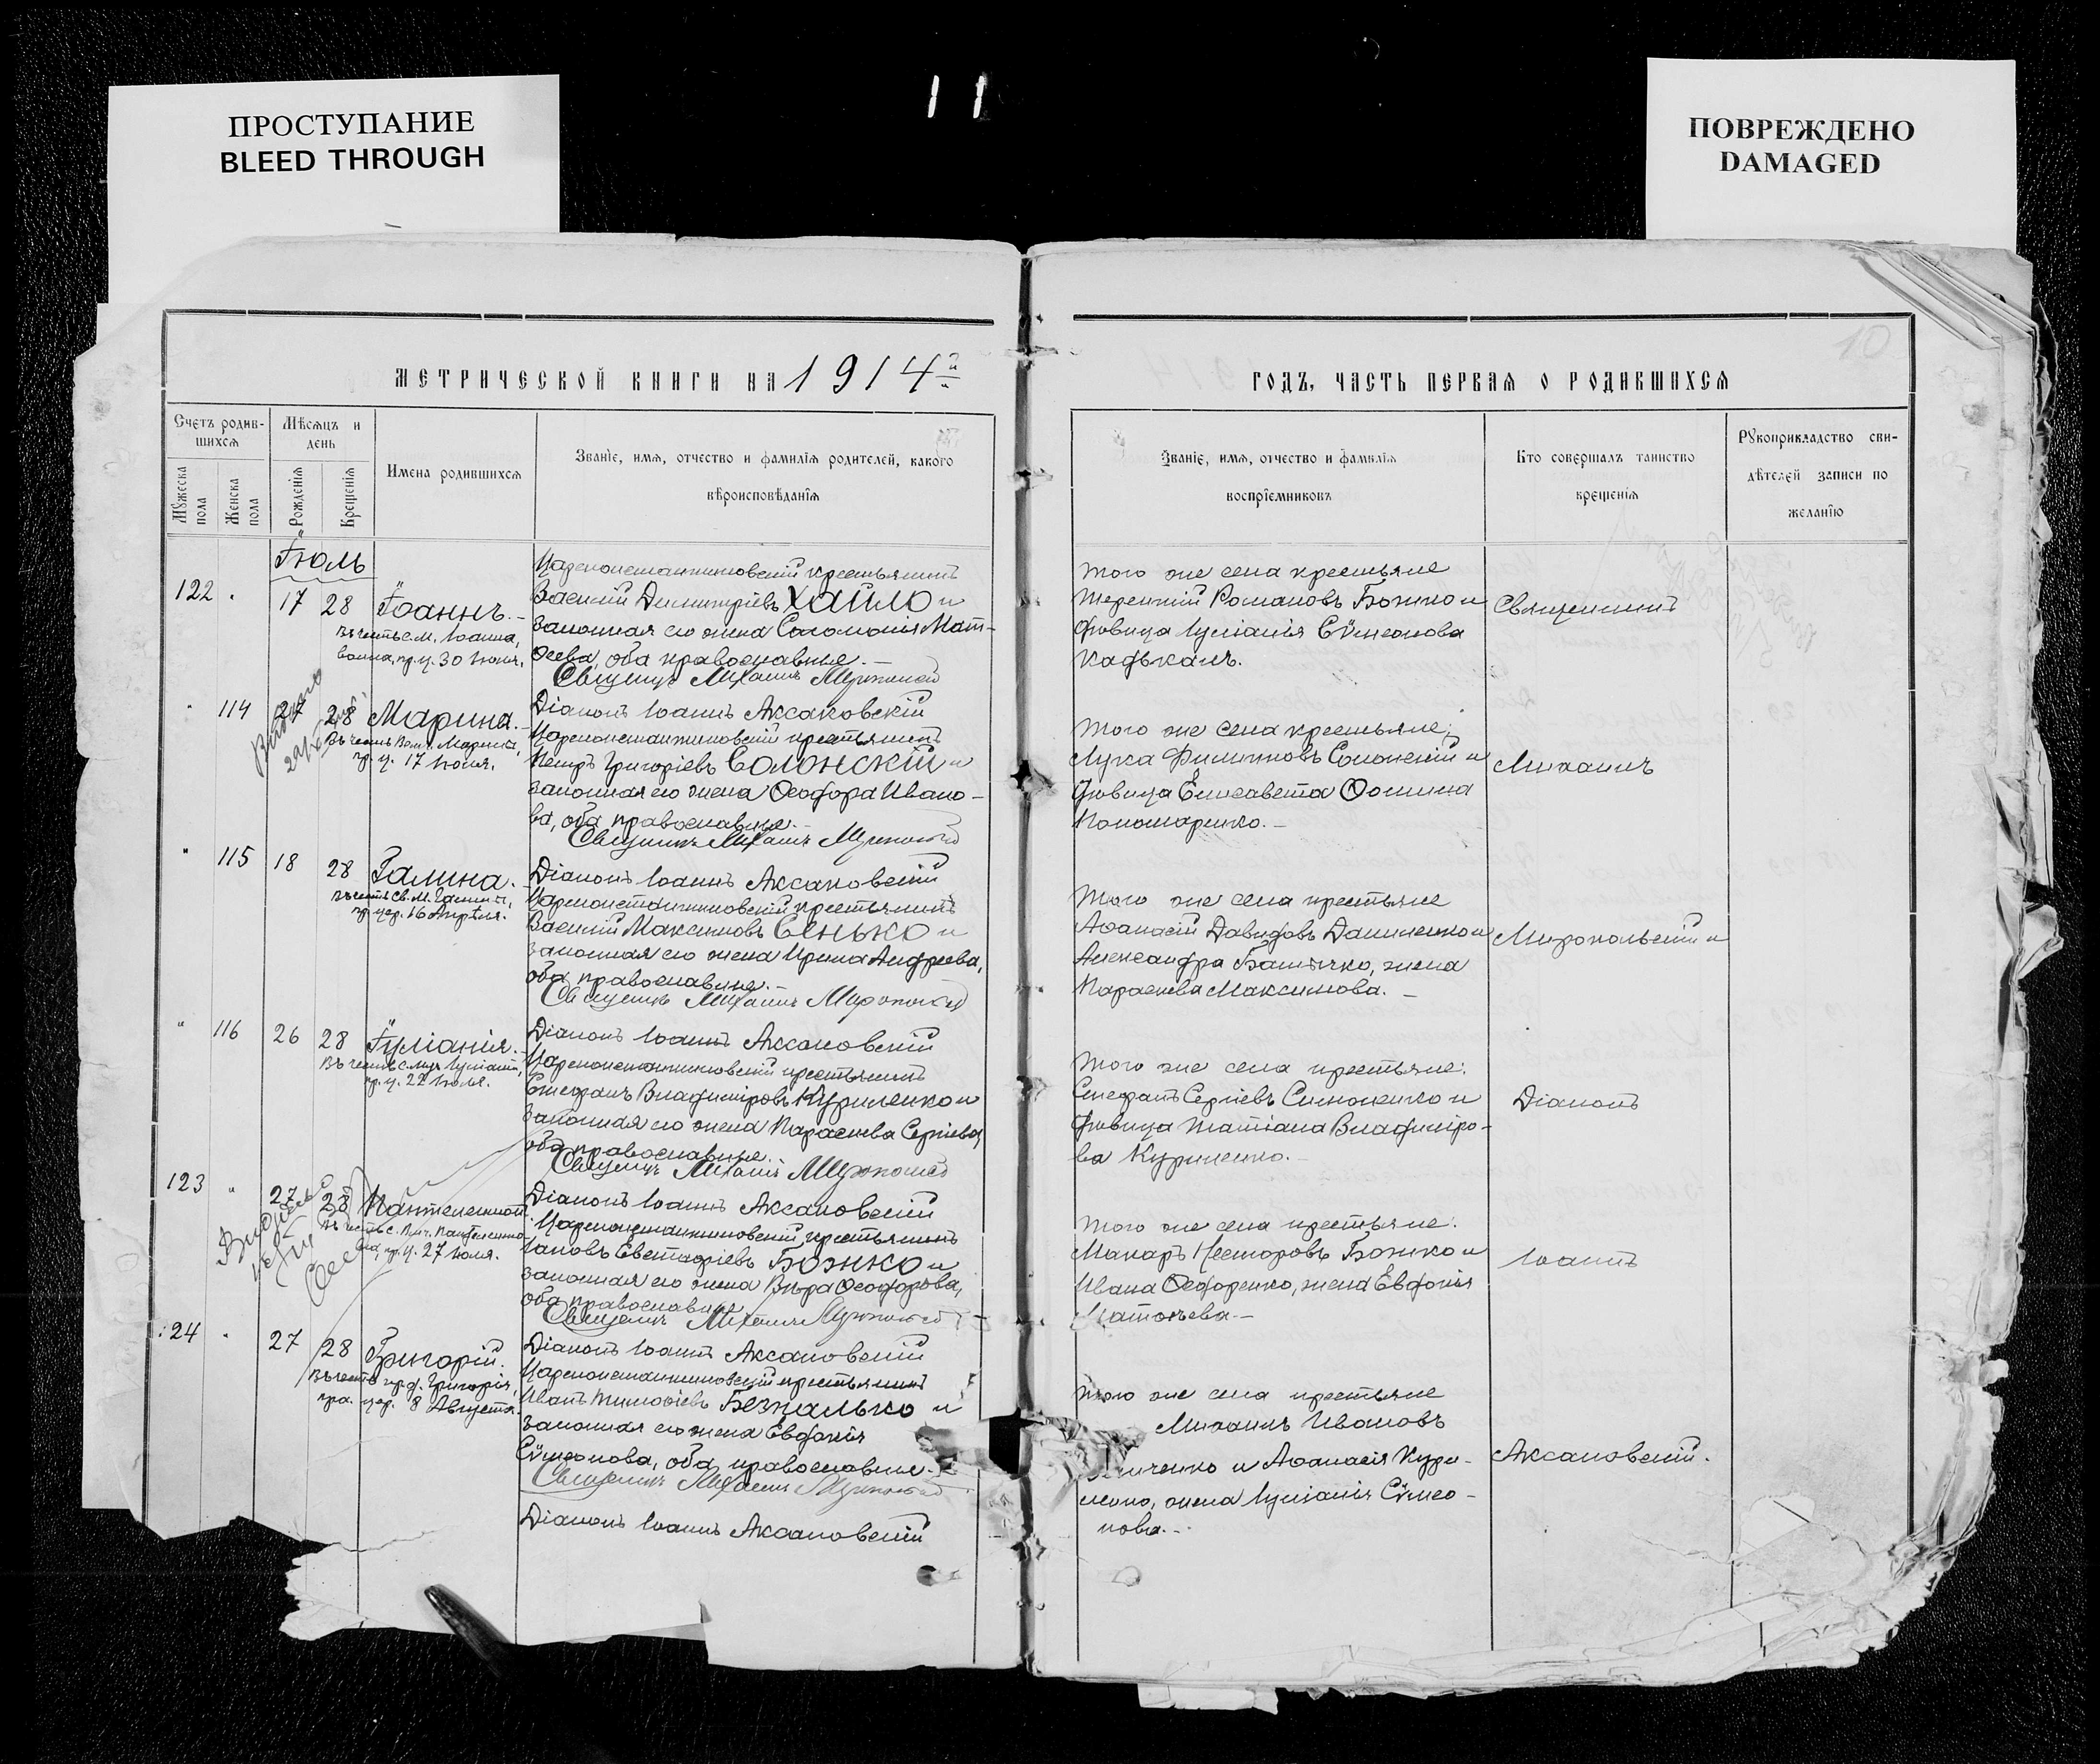 ПРОСТУПАНИЕ
BLEED THROUGH
ПОВРЕЖДЕНО
DAMAGED
10
МЕТРИЧЕСКОЙ КНИГИ НА 1914й
Счетъ родив-
шихся
Мужеска пола
Женска пола
Мѣсяцъ и
день
Рожденія
Крещенія
Имена родившихся
Званіе, имя, отчество и фамилія родителей, какого
вѣроисповѣданія
Іюль
122 " 17 28 Іоаннъ.
Въ честь с. М. Іоанна,
воина, пр. ц. 30 Іюля.
Цареконстантиновскій крестьянинъ
Василій Димитріевъ Хайло и
законная его жена Соломонія Мат-
ѳеева, оба православные.
Священникъ Михаилъ Миропольскій
Діаконъ Іоаннъ Аксаковскій
" 114 28 Марина.
Въ честь Вел. Марины,
пр. ц. 17 Іюля.
Цареконстантиновскій крестьянинъ
Петръ Григоріевъ Солонскій и
законная его жена Ѳеодора Ивано-
ва, оба православные.
Священникъ Михаилъ Миропольскій
Діаконъ Іоаннъ Аксаковскій
" 115 18 28 Галина.
Въ честь Св. М. Галины,
пр. цер. 16 Апрѣля.
Цареконстантиновскій крестьянинъ
Василій Максимовъ Сенько и
законная его жена Ирина Андреева,
оба православные.
Священникъ Михаилъ Миропольскій
Діаконъ Іоаннъ Аксаковскій
" 116 26 28 Іуліанія.
Въ честь с. муч. Іуліаніи,
пр. ц. 22 Іюля.
Цареконстантиновскій крестьянинъ
Стефанъ Владиміровъ Куриленко и
законная его жена Параскева Сергіева,
оба православные.
Священникъ Михаилъ Миропольскій
Діаконъ Іоаннъ Аксаковскій
123 " 27 28 Пантелеимонъ
Въ честь с. Вмч. Пантелеимо-
на, пр. ц. 27 Іюля.
Цареконстантиновскій крестьянинъ
Іаковъ Евстафіевъ Божко и
законная его жена Вѣра Ѳеодорова,
оба православные
Священникъ Михаилъ Миропольскій
Діаконъ Іоаннъ Аксаковскій
124 " 27 28 Григорій.
Въ честь Григорія,
пра. цер. 8 Августа.
Цареконстантиновскій крестьянинъ
Иванъ Тимоѳіевъ Безпалько и
законная его жена Евдокія
Сѵмеонова, оба православные.
Священникъ Михаилъ Миропольскій
Діаконъ Іоаннъ Аксаковскій
ГОДЪ, ЧАСТЬ ПЕРВАЯ О РОДИВШИХСЯ
Званіе, имя, отчество и фамилія
воспріемниковъ
Кто совершалъ таинство
крещенія
Рукоприкладство сви-
дѣтелей записи по
желанію
того же села крестьяне
Терентій Романовъ Божко и
дѣвица Іуліанія Сѵмеонова
Кадькалъ.
Того же села крестьяне:
Лука Филипповъ Солонскій и
дѣвица Елисавета Ѳомина
Пономаренко.
Того же села крестьяне
Аѳанасій Давидовъ Даниленко и
Александра жена
Параскева Максимова.
Того же села крестьяне:
Стефанъ Сергіевъ Симоненко и
дѣвица Татіана Владиміро-
ва Куриленко.
Того же села крестьяне:
Макаръ Несторовъ Божко и
Ивана Ѳедоренко, жена Евдокія
Матѳеева.
Того же села крестьяне
Михаилъ Ивановъ
и Аѳанасія Кури-
ленко, жена Іуліанія Сѵмео-
нова.
Священникъ
Михаилъ
Миропольскій и
Діаконъ
Іоаннъ
Аксаковскій.